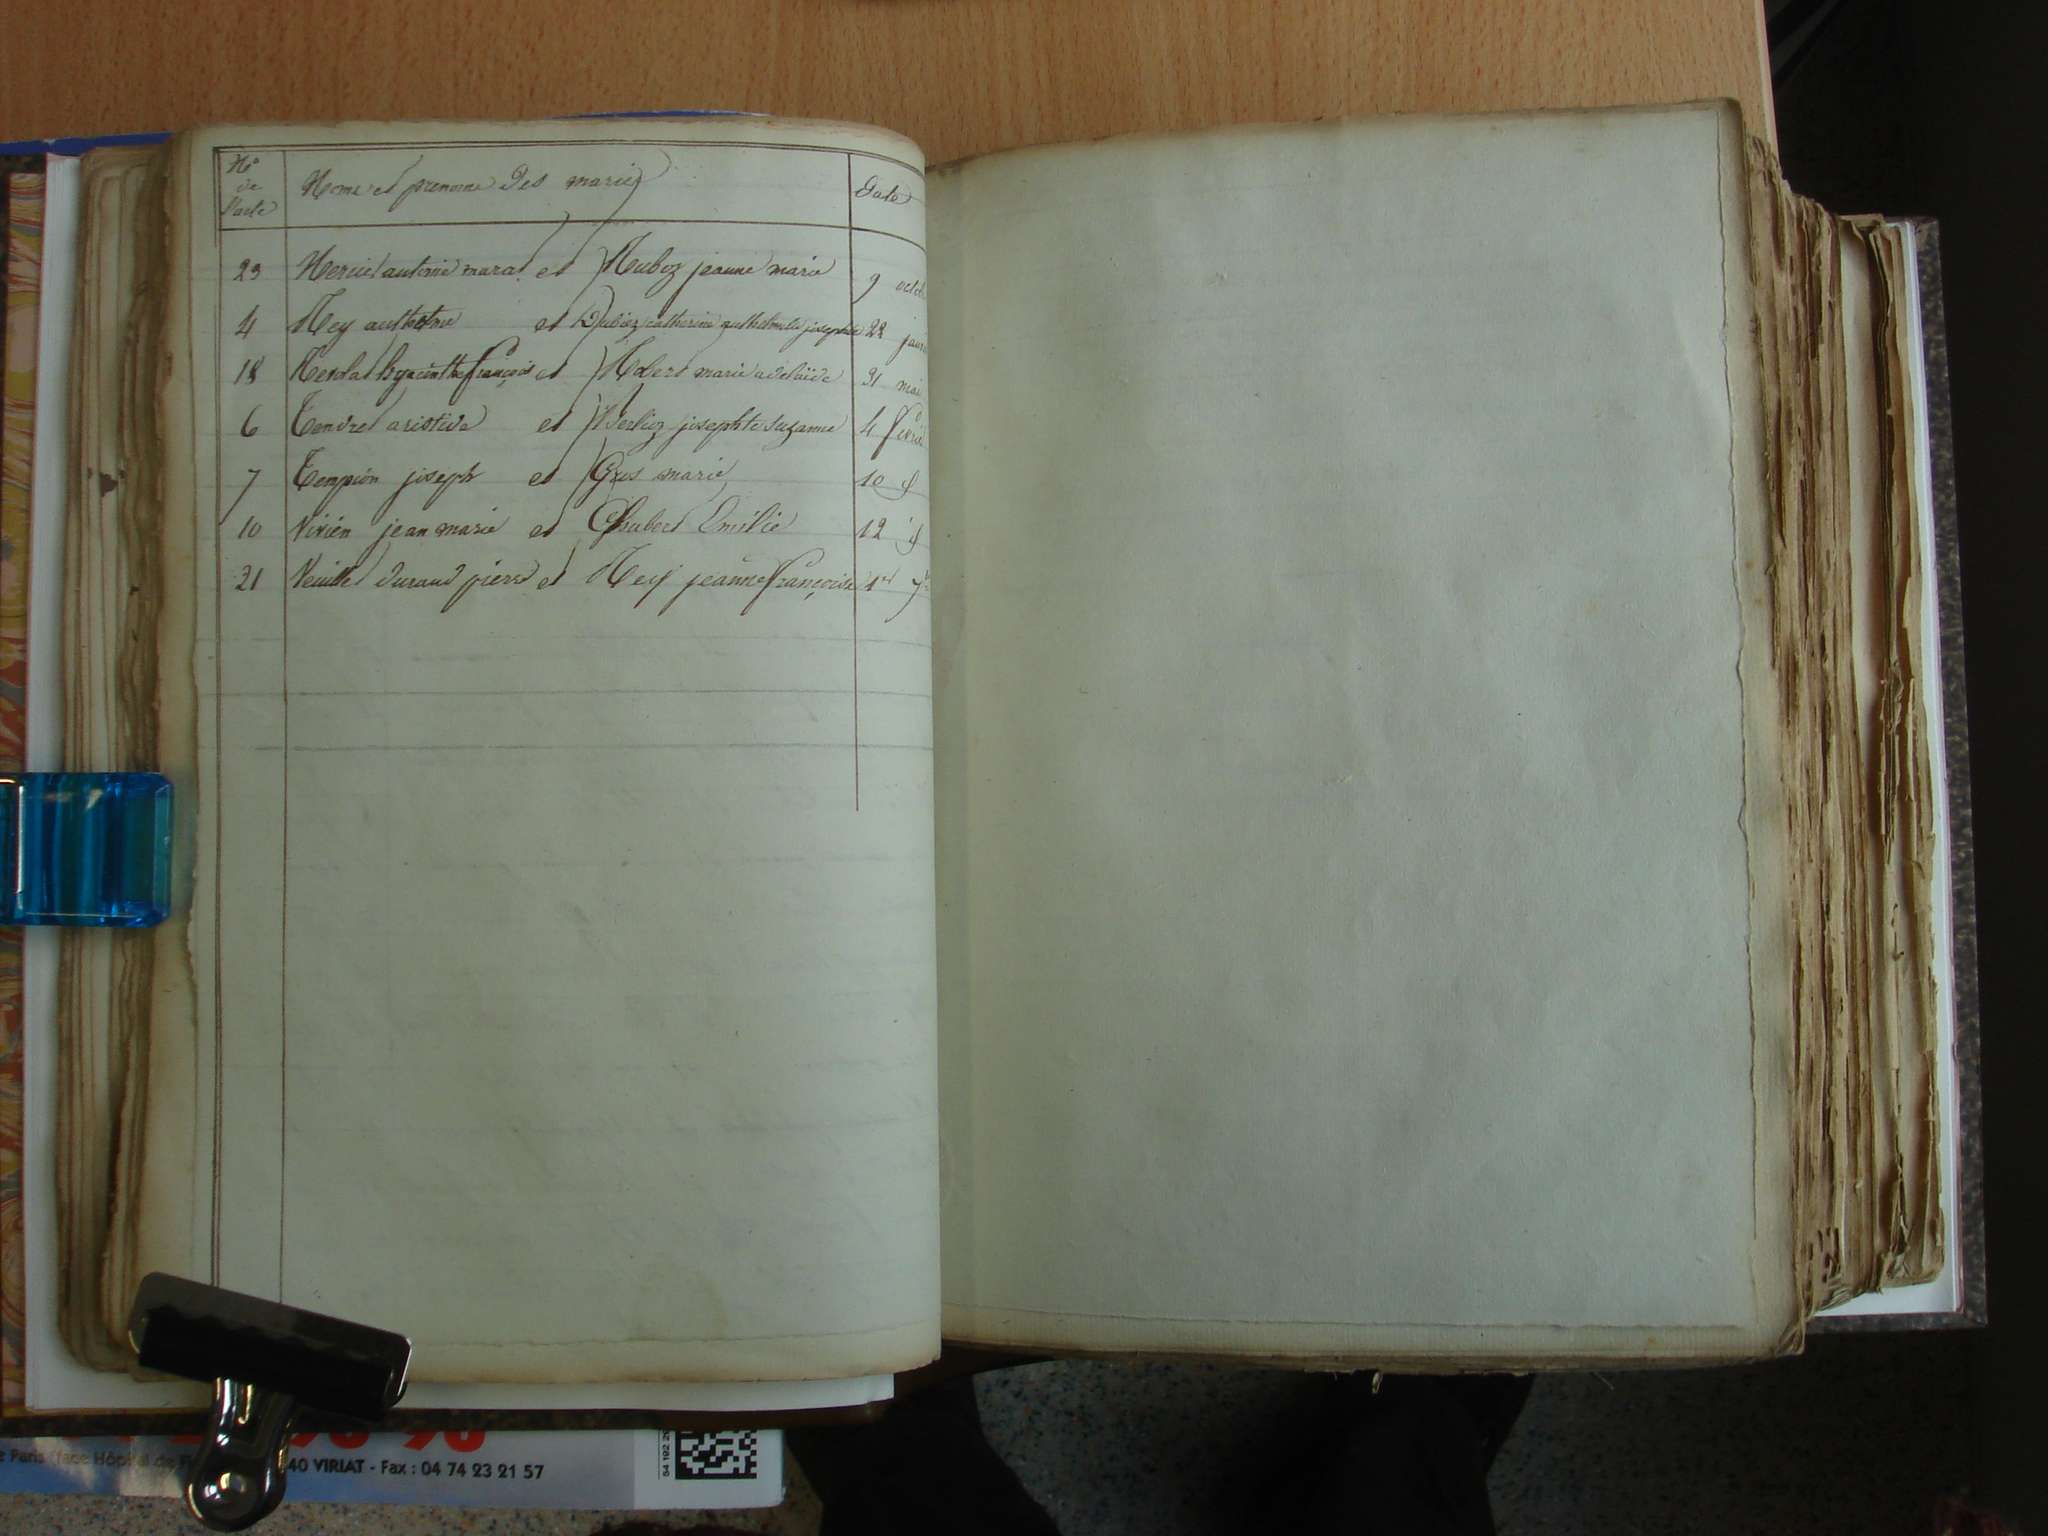 N° de l'acte
Noms et prenoms des mariés
Date
23 antoine et jeanne marie 9 octob
4 Rey anthelme et Dubiez catherine josephte 22 janv
18 hyacinthe françois et marie adelaïde 31 mai
6 Tendret aristide et Berlioz josephte suzanne 4 fevrie
7 Tempion joseph et Gros marie 10 id
10 Vivien jean marie et Chabert Emilie 12 id
21 Veuillet durand pierre et Rey jeanne françoise 1er 7
Paris (face Hôpital de
40 VIRIAT - Fax : 04 74 23 21 57